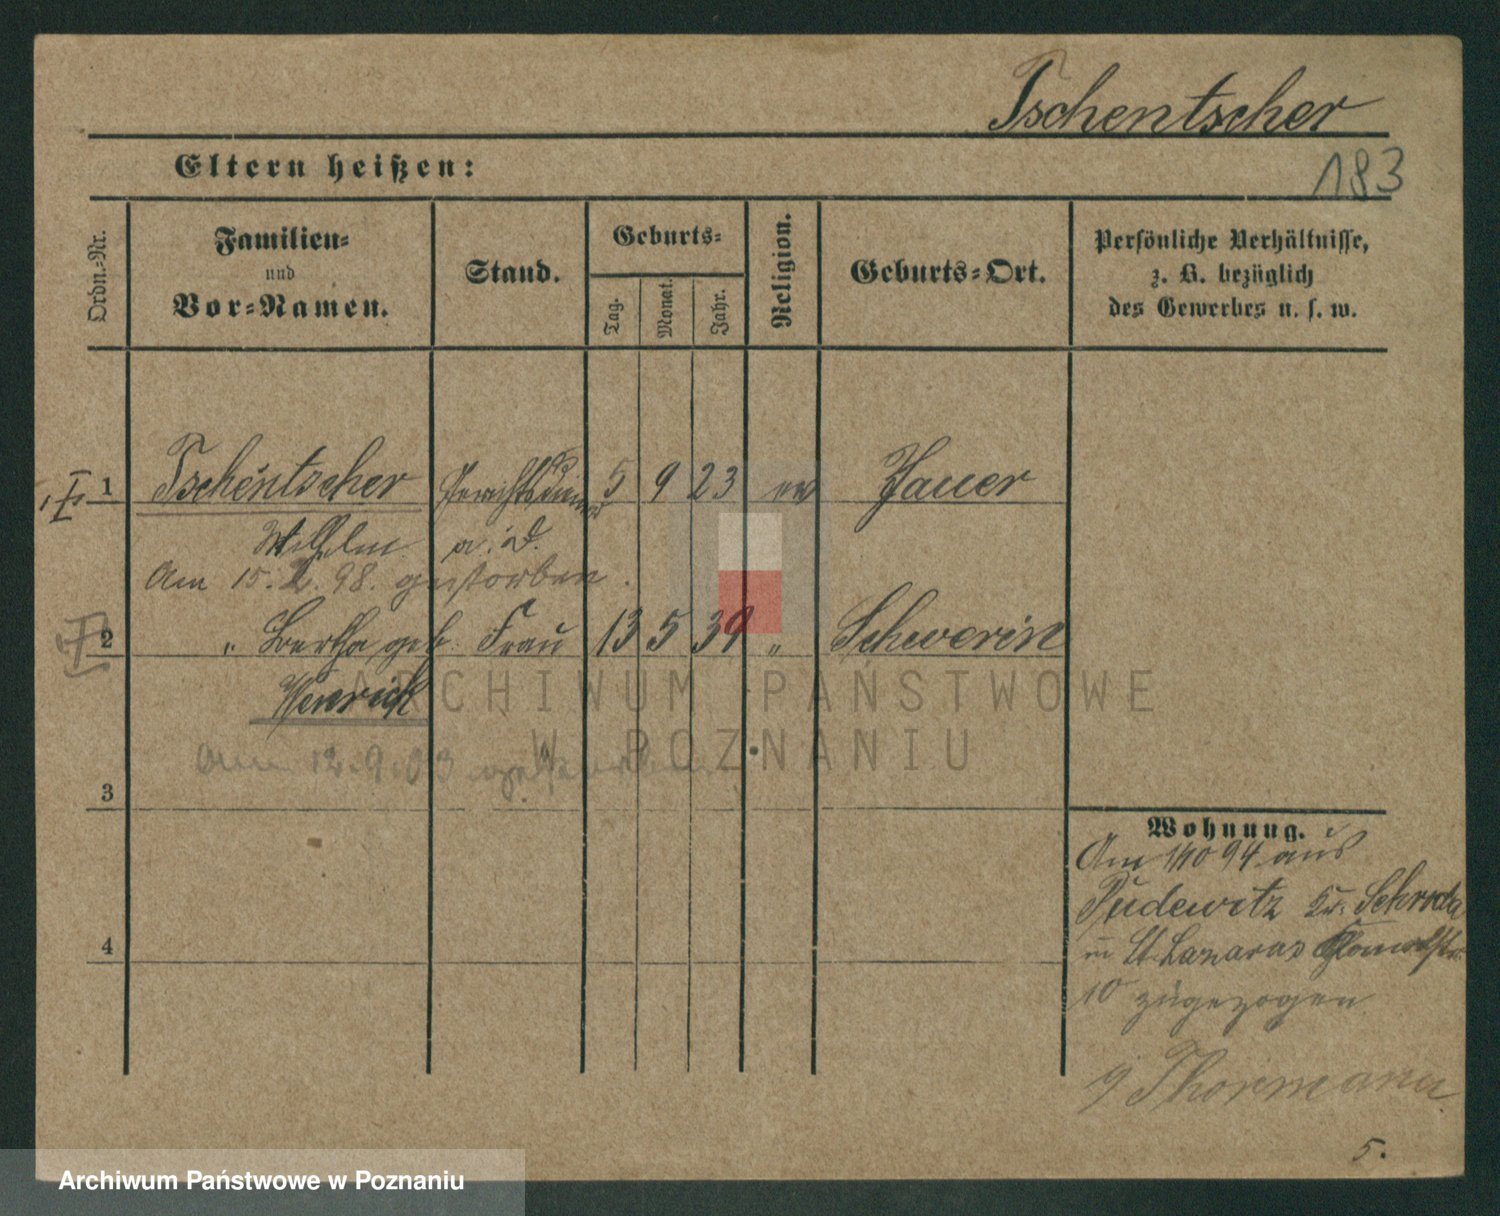 Tschentscher
Eltern heißen:
183
Ordn.-Nr.
Familien-
und
Vor-Namen.
Stand.
Geburts-
Tag.
Monat.
Jahr.
Religion.
Geburts-Ort.
Persönliche Verhältnisse,
z. B. bezüglich
des Gewerbes u. s. w.
I 1 Tschentscher Gerichtsdiener 5 9 23 ev Jauer
Wilhelm a. D.
Am 15. 2. 98. gestorben.
II 2 " Bertha geb. Frau 13 5 39 " Schwerin
Henrick
Am 12.9.03 gestorben
3
4
Wohnung.
Am 1/10 94 aus
Pudewitz Kr. Schroda
in St. Lazarus
10 zugezogen
Thormann
5.
ARCHIWUM PAŃSTWOWE
W POZNANIU
Archiwum Państwowe w Poznaniu